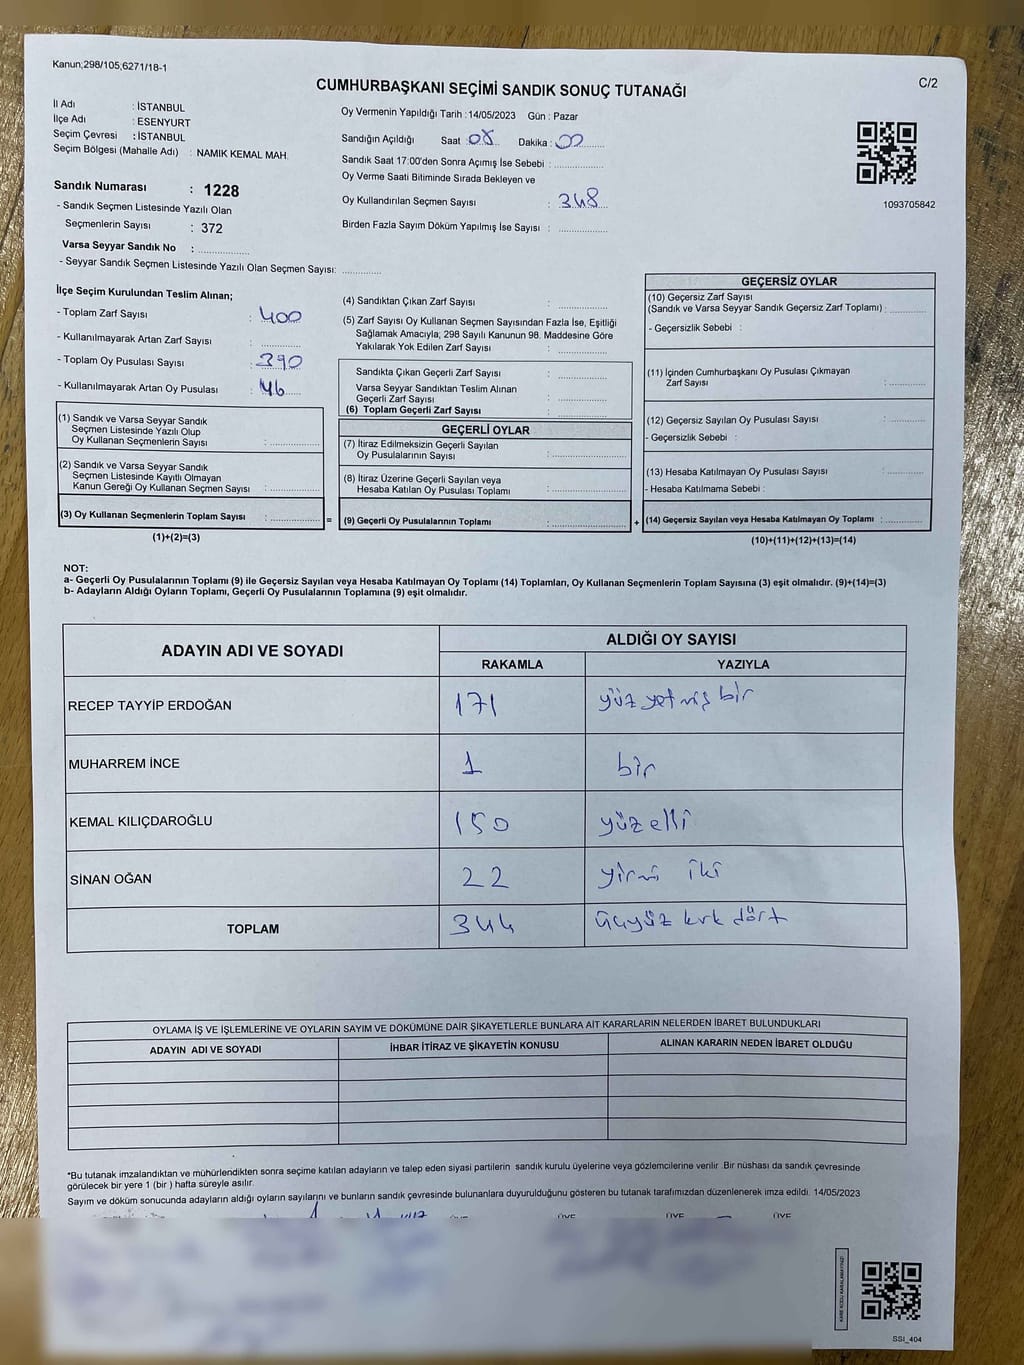 Kanun;298/105,6271/18-1
C/2
CUMHURBAŞKANI SEÇİMİ SANDIK SONUÇ TUTANAĞI
İl Adı : İSTANBUL
İlçe Adı : ESENYURT
Seçim Çevresi : İSTANBUL
Seçim Bölgesi (Mahalle Adı) : NAMIK KEMAL MAH.
Sandık Numarası : 1228
- Sandık Seçmen Listesinde Yazılı Olan
Seçmenlerin Sayısı : 372
Varsa Seyyar Sandık No : ..............
- Seyyar Sandık Seçmen Listesinde Yazılı Olan Seçmen Sayısı: ............
Oy Vermenin Yapıldığı Tarih :14/05/2023 Gün : Pazar
Sandığın Açıldığı Saat :08 Dakika :00
Sandık Saat 17:00'den Sonra Açımış İse Sebebi : ..............
Oy Verme Saati Bitiminde Sırada Bekleyen ve
Oy Kullandırılan Seçmen Sayısı : 348
Birden Fazla Sayım Döküm Yapılmış İse Sayısı : ..............
1093705842
İlçe Seçim Kurulundan Teslim Alınan;
- Toplam Zarf Sayısı : 400
- Kullanılmayarak Artan Zarf Sayısı : ..............
- Toplam Oy Pusulası Sayısı : 390
- Kullanılmayarak Artan Oy Pusulası : 46
(1) Sandık ve Varsa Seyyar Sandık
Seçmen Listesinde Yazılı Olup
Oy Kullanan Seçmenlerin Sayısı : ..............
(2) Sandık ve Varsa Seyyar Sandık
Seçmen Listesinde Kayıtlı Olmayan
Kanun Gereği Oy Kullanan Seçmen Sayısı : ..............
(3) Oy Kullanan Seçmenlerin Toplam Sayısı : .............. =
(1)+(2)=(3)
(4) Sandıktan Çıkan Zarf Sayısı : ..............
(5) Zarf Sayısı Oy Kullanan Seçmen Sayısından Fazla İse, Eşitliği
Sağlamak Amacıyla; 298 Sayılı Kanunun 98. Maddesine Göre
Yakılarak Yok Edilen Zarf Sayısı : ..............
Sandıkta Çıkan Geçerli Zarf Sayısı : ..............
Varsa Seyyar Sandıktan Teslim Alınan
Geçerli Zarf Sayısı : ..............
(6) Toplam Geçerli Zarf Sayısı : ..............
GEÇERLİ OYLAR
(7) İtiraz Edilmeksizin Geçerli Sayılan
Oy Pusulalarının Sayısı : ..............
(8) İtiraz Üzerine Geçerli Sayılan veya
Hesaba Katılan Oy Pusulası Toplamı : ..............
(9) Geçerli Oy Pusulalarının Toplamı : .............. +
GEÇERSİZ OYLAR
(10) Geçersiz Zarf Sayısı
(Sandık ve Varsa Seyyar Sandık Geçersiz Zarf Toplamı) : ..............
- Geçersizlik Sebebi :
(11) İçinden Cumhurbaşkanı Oy Pusulası Çıkmayan
Zarf Sayısı : ..............
(12) Geçersiz Sayılan Oy Pusulası Sayısı : ..............
- Geçersizlik Sebebi :
(13) Hesaba Katılmayan Oy Pusulası Sayısı : ..............
- Hesaba Katılmama Sebebi :
(14) Geçersiz Sayılan veya Hesaba Katılmayan Oy Toplamı : ..............
(10)+(11)+(12)+(13)=(14)
NOT:
a- Geçerli Oy Pusulalarının Toplamı (9) ile Geçersiz Sayılan veya Hesaba Katılmayan Oy Toplamı (14) Toplamları, Oy Kullanan Seçmenlerin Toplam Sayısına (3) eşit olmalıdır. (9)+(14)=(3)
b- Adayların Aldığı Oyların Toplamı, Geçerli Oy Pusulalarının Toplamına (9) eşit olmalıdır.
ADAYIN ADI VE SOYADI
ALDIĞI OY SAYISI
RAKAMLA YAZIYLA
RECEP TAYYİP ERDOĞAN 171 yüz yetmiş bir
MUHARREM İNCE 1 bir
KEMAL KILIÇDAROĞLU 150 yüz elli
SİNAN OĞAN 22 yirmi iki
TOPLAM 344 üçyüz kırk dört
OYLAMA İŞ VE İŞLEMLERİNE VE OYLARIN SAYIM VE DÖKÜMÜNE DAİR ŞİKAYETLERLE BUNLARA AİT KARARLARIN NELERDEN İBARET BULUNDUKLARI
ADAYIN ADI VE SOYADI İHBAR İTİRAZ VE ŞİKAYETİN KONUSU ALINAN KARARIN NEDEN İBARET OLDUĞU
*Bu tutanak imzalandıktan ve mühürlendikten sonra seçime katılan adayların ve talep eden siyasi partilerin sandık kurulu üyelerine veya gözlemcilerine verilir .Bir nüshası da sandık çevresinde
görülecek bir yere 1 (bir ) hafta süreyle asılır.
Sayım ve döküm sonucunda adayların aldığı oyların sayılarını ve bunların sandık çevresinde bulunanlara duyurulduğunu gösteren bu tutanak tarafımızdan düzenlenerek imza edildi. 14/05/2023
ÜYE ÜYE ÜYE ÜYE
SSI_404